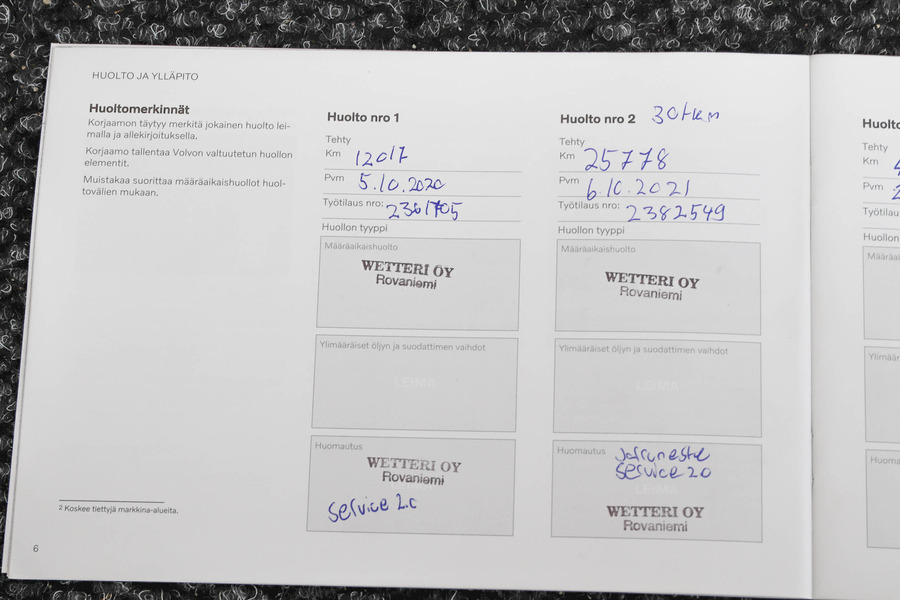 HUOLTO JA YLLÄPITO
Huoltomerkinnät
Korjaamon täytyy merkitä jokainen huolto lei-
malla ja allekirjoituksella.
Korjaamo tallentaa Volvon valtuutetun huollon
elementit.
Muistakaa suorittaa määräaikaishuollot huol-
tovälien mukaan.
2 Koskee tiettyjä markkina-alueita.
6
Huolto nro 1
Tehty
Km 12017
Pvm 5.10.2020
Työtilaus nro: 2361705
Huollon tyyppi
Määräaikaishuolto
WETTERI OY
Rovaniemi
Ylimääräiset öljyn ja suodattimen vaihdot
LEIMA
Huomautus
WETTERI OY
Rovaniemi
Service 2.0
Huolto nro 2 30tkm
Tehty
Km 25778
Pvm 6.10.2021
Työtilaus nro: 2382549
Huollon tyyppi
Määräaikaishuolto
WETTERI OY
Rovaniemi
Ylimääräiset öljyn ja suodattimen vaihdot
LEIMA
Huomautus Jarruneste
Service 2.0
LEIMA
WETTERI OY
Rovaniemi
Tehty
Km
Pvm